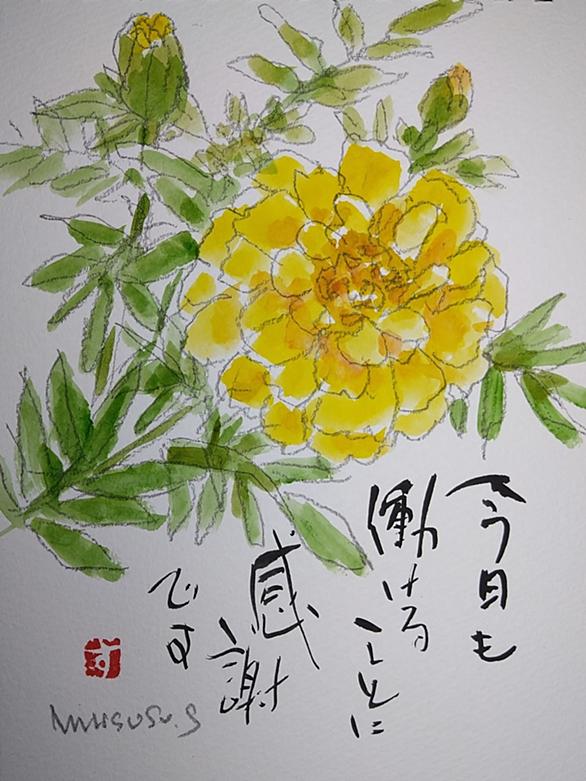 今日も
働ける
ことに
感謝
です